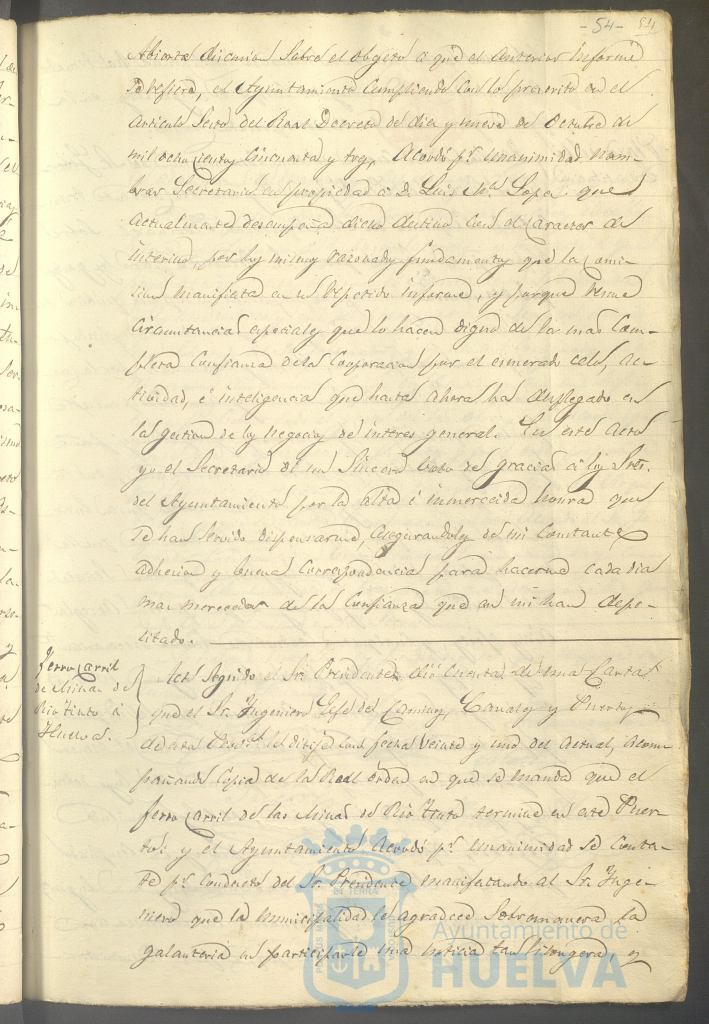 - 54 - 54
Abierta discusion sobre el objeto á que el anterior informe
se refiere, el Ayuntamiento cumpliendo con lo prescrito en el
articulo sesto del Real Decreto de diez y nueve de Octubre de
mil ochocientos cincuenta y tres, Acordó pr. unanimidad nom-
brar Secretario en propiedad á D. Luis Ma. Lopez que
actualmente desempeña dicho destino con el caracter de
interino, por los mismos razonados fundamentos que la comi-
sion manifiesta en su repetido informe, y porque reune
circunstancias especiales que lo hacen digno de la mas com-
pleta confianza de la Corporacion por el esmerado celo, ac-
tividad, é inteligencia que hasta ahora ha desplegado en
la gestion de los negocios de interes general. En este acto
yo el Secretario dí un sincero voto de gracias á los Sres.
del Ayuntamiento por la alta é inmerecida honra que
se han servido dispensarme, asegurandoles de mi constante
adhesion y buena correspondencia para hacerme cada dia
mas merecedor de la confianza que en mi han depo-
sitado.
Ferro carril
de Minas de
Rio Tinto á
Huelva.
Acto seguido el Sr. Presidente dió cuenta de una carta
que el Sr. Ingeniero Gefe de Caminos, Canales y Puertos
de esta le dirije con fecha veinte y uno del actual, acom-
pañando copia de la Real órden en que se manda que el
ferro carril de las Minas de Rio Tinto termine en este Puer-
to: y el Ayuntamiento Acordó pr. unanimidad se contes-
te pr. conducto del Sr. Presidente manifestando al Sr. Inge-
niero que la municipalidad le agradece sobremanera la
galanteria en participarle una noticia tan lisongera, y
Ayuntamiento de
HUELVA